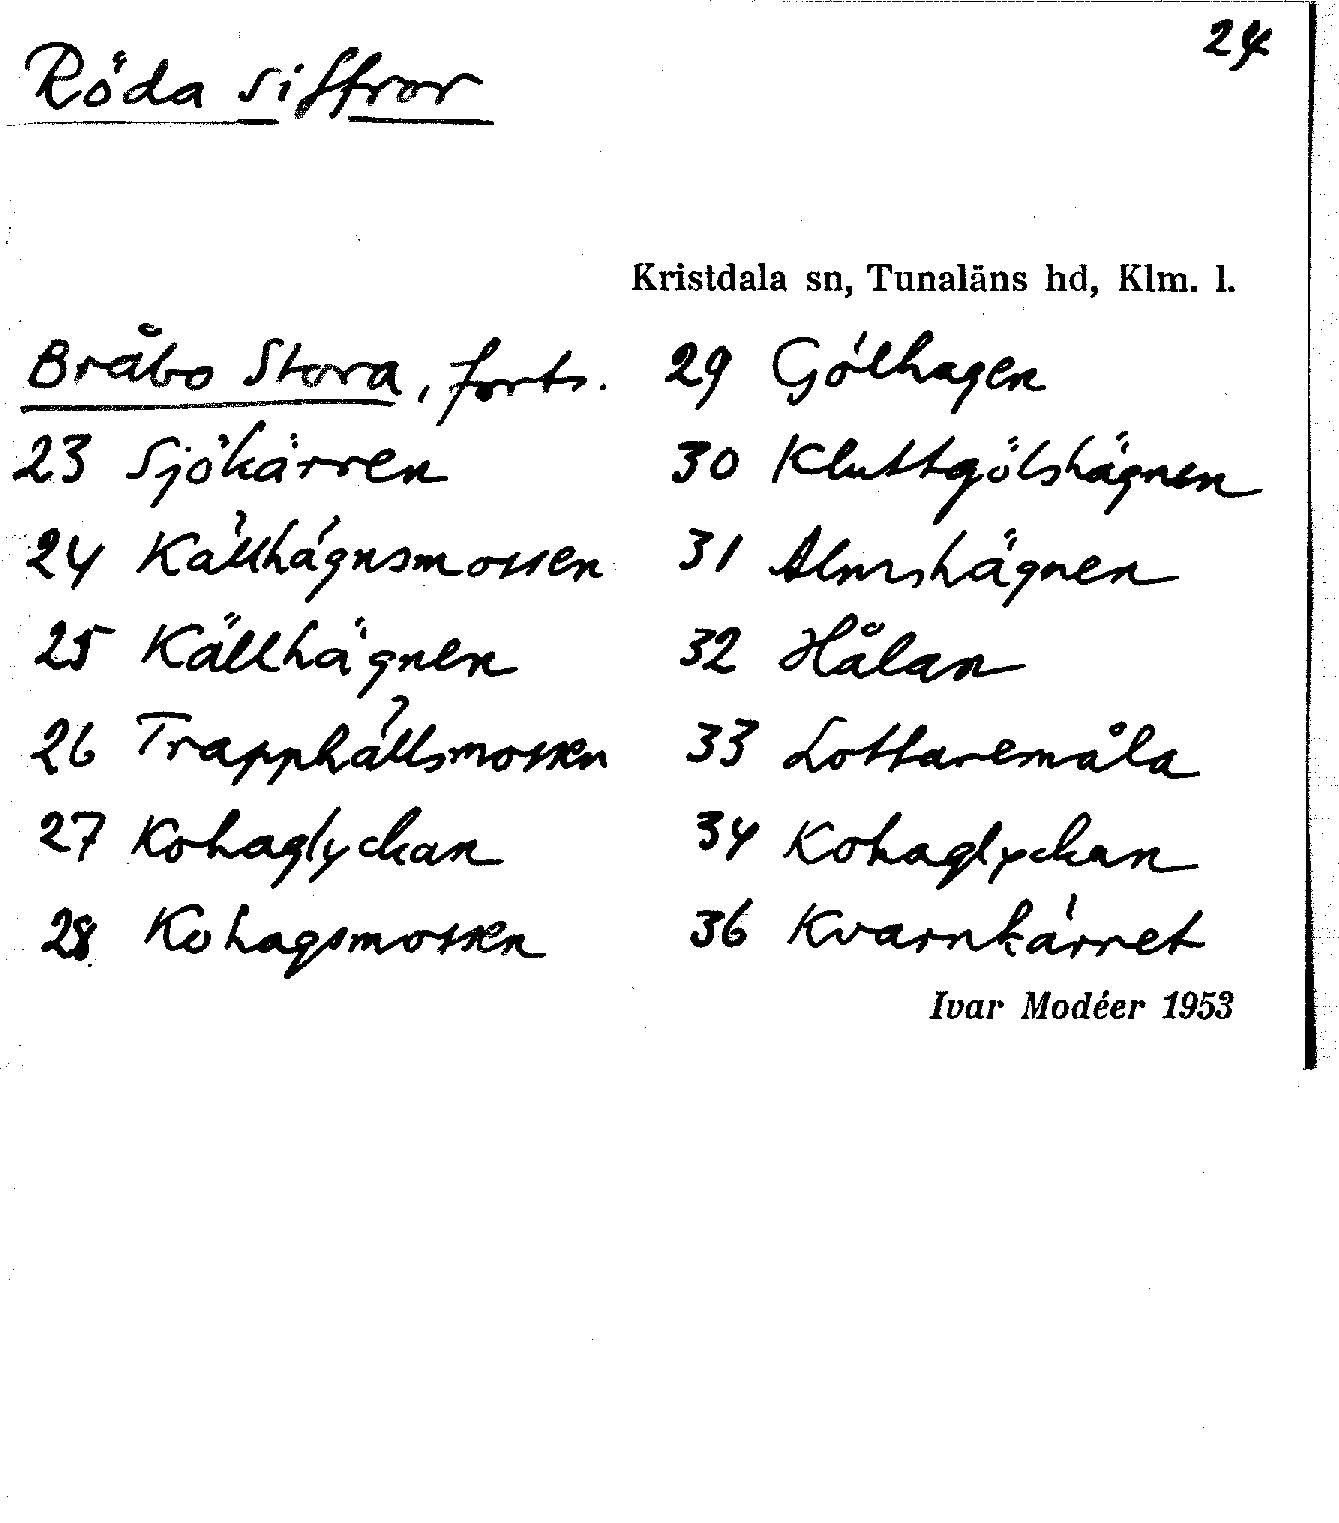 24
Röda siffror
Kristdala sn, Tunaläns hd, Klm. l.
Bråbo Stora, forts.
23 Sjökärren
24 Källhägnsmossen
25 Källhägnen
26 Trapphällsmossen
27 Kohaglyckan
28 Kohagsmossen
29 Gölhagen
30 Kluttgölshägnen
31 Almshägnen
32 Hålan
33 Lottaremåla
34 Kohaglyckan
36 Kvarnkärret
Ivar Modéer 1953